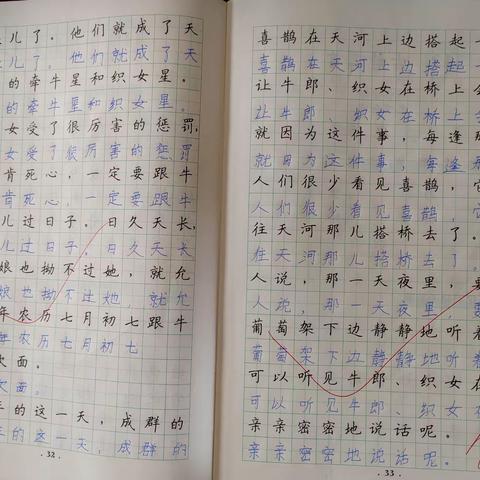 儿了。他们就成了天
儿了。他们就成了天
的牵牛星和织女星。
的牵牛星和织女星。
女受了很厉害的惩罚,
女受了很厉害的惩罚
肯死心,一定要跟牛
肯死心,一定要跟牛
儿过日子。日久天长,
儿过日子。日久天长
娘也拗不过她,就允
娘也拗不过她,就允
年农历七月初七跟牛
年农历七月初七
次面。
次面。
的这一天,成群的
的这一天,成群的
32
喜鹊在天河上边搭起一
喜鹊在天河上边搭起一
让牛郎、织女在桥上会
让牛郎、织女在桥上会
就因为这件事,每逢那
就因为这件事,每逢那
人们很少看见喜鹊,它
人们很少看见喜鹊,它
往天河那儿搭桥去了。
往天河那儿搭桥去了。
人说,那一天夜里,要
人说,那一天夜里,要
葡萄架下边静静地听着
葡萄架下边静静地听着
可以听见牛郎、织女在
可以听见牛郎、织女在
亲亲密密地说话呢。
亲亲密密地说话呢。
33